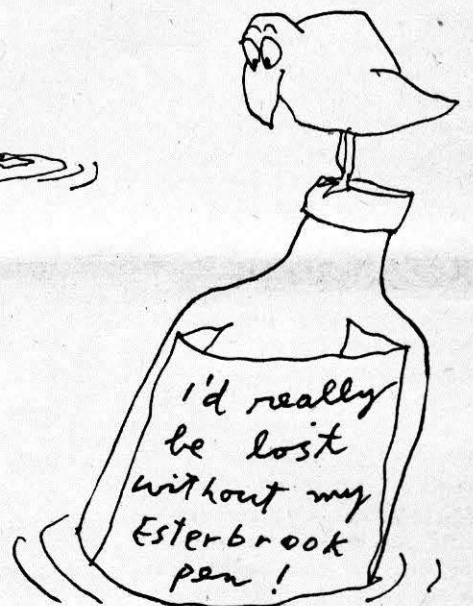 i'd really
be lost
without my
Esterbrook
pen!